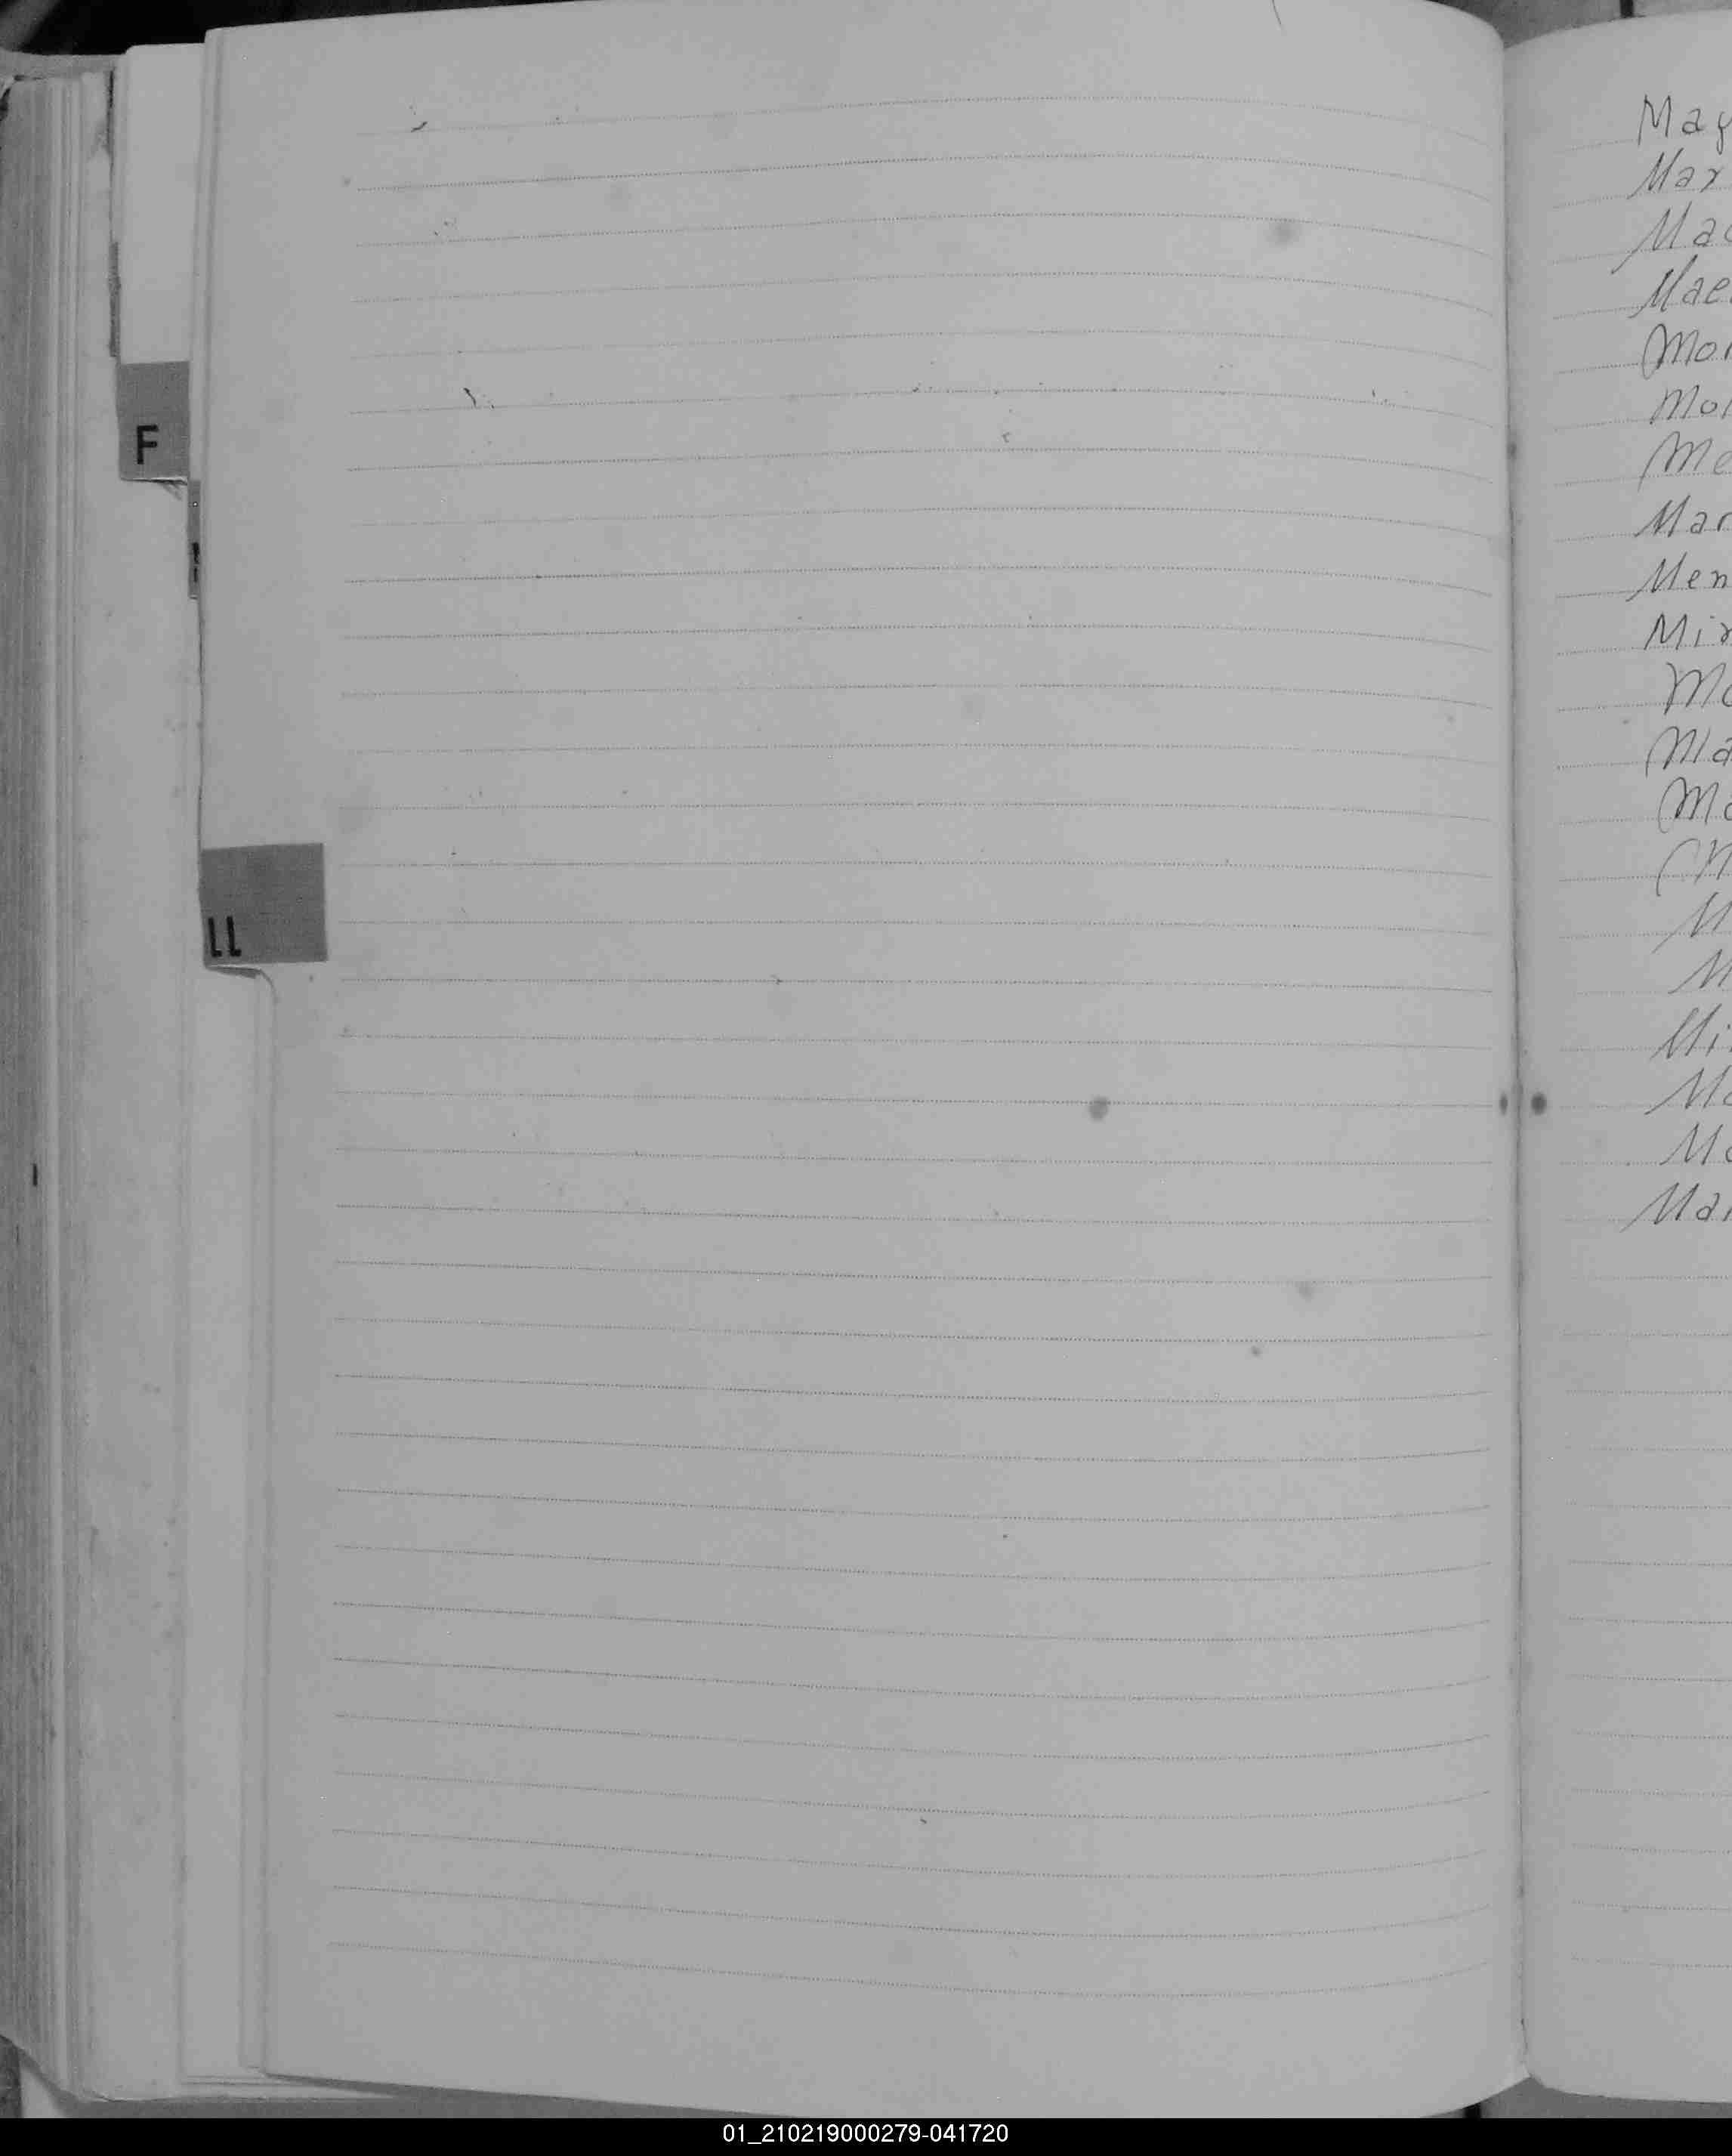 F
LL
May
Mar
Mac
Mae
Mor
Mol
Me
Mar
Men
Mir
Mo
Ma
Ma
M
M
M
Mi
Ma
Mo
Mar
01_210219000279-041720